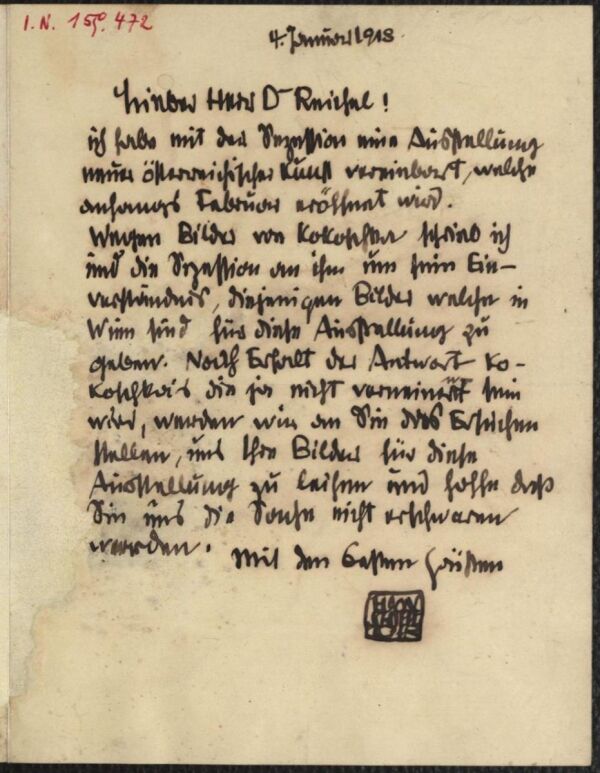 I.N. 159.472
4. Januar 1918
Lieber Herr Dr Reichel!
ich habe mit der Sezession eine Ausstellung
neuer österreichischer Kunst vereinbart, welche
anfangs Februar eröffnet wird.
Wegen Bilder von Kokoschka schrieb ich
und die Sezession an ihn um sein Ein-
verständnis, diejenigen Bilder welche in
Wien sind für diese Ausstellung zu
geben. Nach Erhalt der Antwort Ko-
koschka's die ja nicht verneinend sein
wird, werden wir an Sie das Ersuchen
stellen, uns Ihre Bilder für diese
Ausstellung zu leihen und hoffe daß
Sie uns die Sache nicht erschweren
werden.
Mit den besten Grüßen